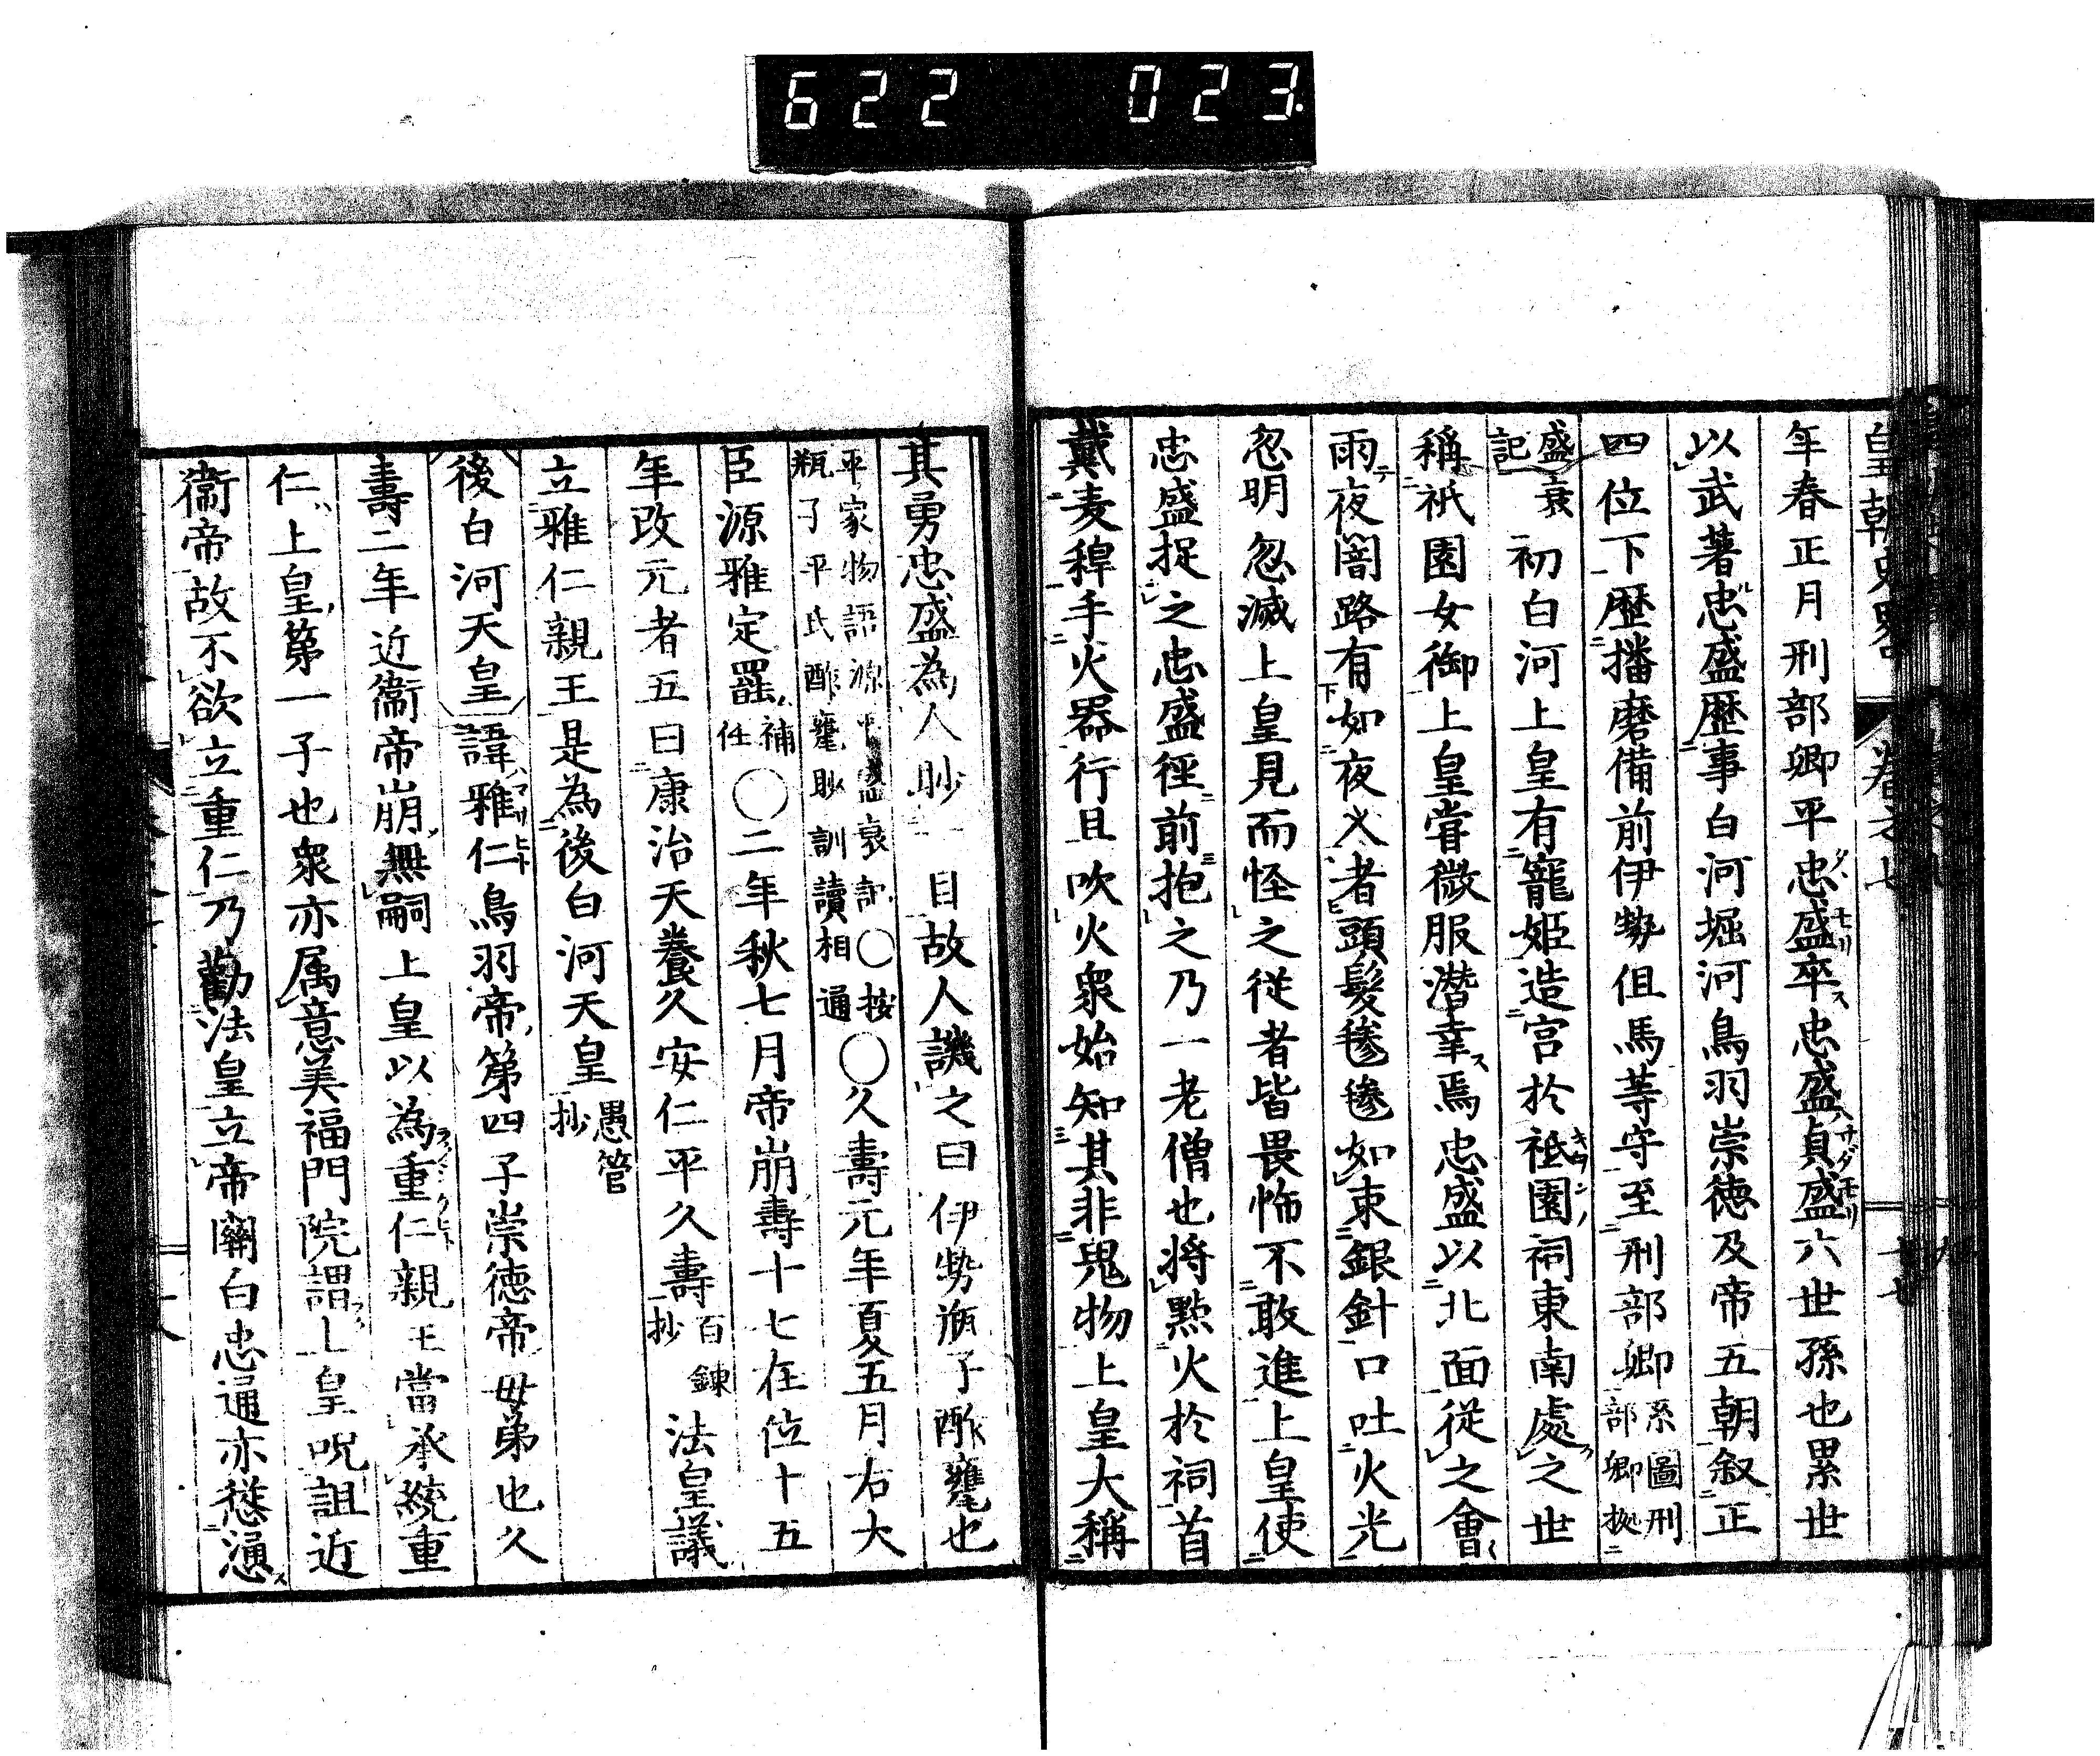 622 023
皇朝史畧 卷之七 十七
年春正月刑部卿平忠盛卒忠盛貞盛六世孫也累世
以武著忠盛歴事白河堀河鳥羽崇徳及帝五朝叙正
四位下歴播磨備前伊勢伹馬等守至刑部卿系圖刑部卿拠
盛衰記初白河上皇有寵姫造宮於祗園祠東南處之世
稱祇園女御上皇甞微服潜幸焉忠盛以北面従之會
雨夜闇路有如夜叉者頭髮毿毿如束銀針口吐火光
忽明忽滅上皇見而怪之従者皆畏怖不敢進上皇使
忠盛捉之忠盛徑前抱之乃一老僧也将㸃火於祠首
戴麦稈手火器行且吹火衆始知其非鬼物上皇大稱
其勇忠盛為人眇一目故人譏之曰伊勢瓶子酢甕也
平家物語源平盛衰記〇按瓶子平氏酢甕眇訓讀相通〇久壽元年夏五月右大
臣源雅定罷補任〇二年秋七月帝崩壽十七在位十五
年改元者五曰康治天養久安仁平久壽百錬抄法皇議
立雅仁親王是為後白河天皇愚管抄
後白河天皇諱雅仁鳥羽帝第四子崇徳帝母弟也久
壽二年近衞帝崩無嗣上皇以為重仁親王當承統重
仁上皇第一子也衆亦属意美福門院謂上皇呪詛近
衞帝故不欲立重仁乃勸法皇立帝關白忠通亦慫慂